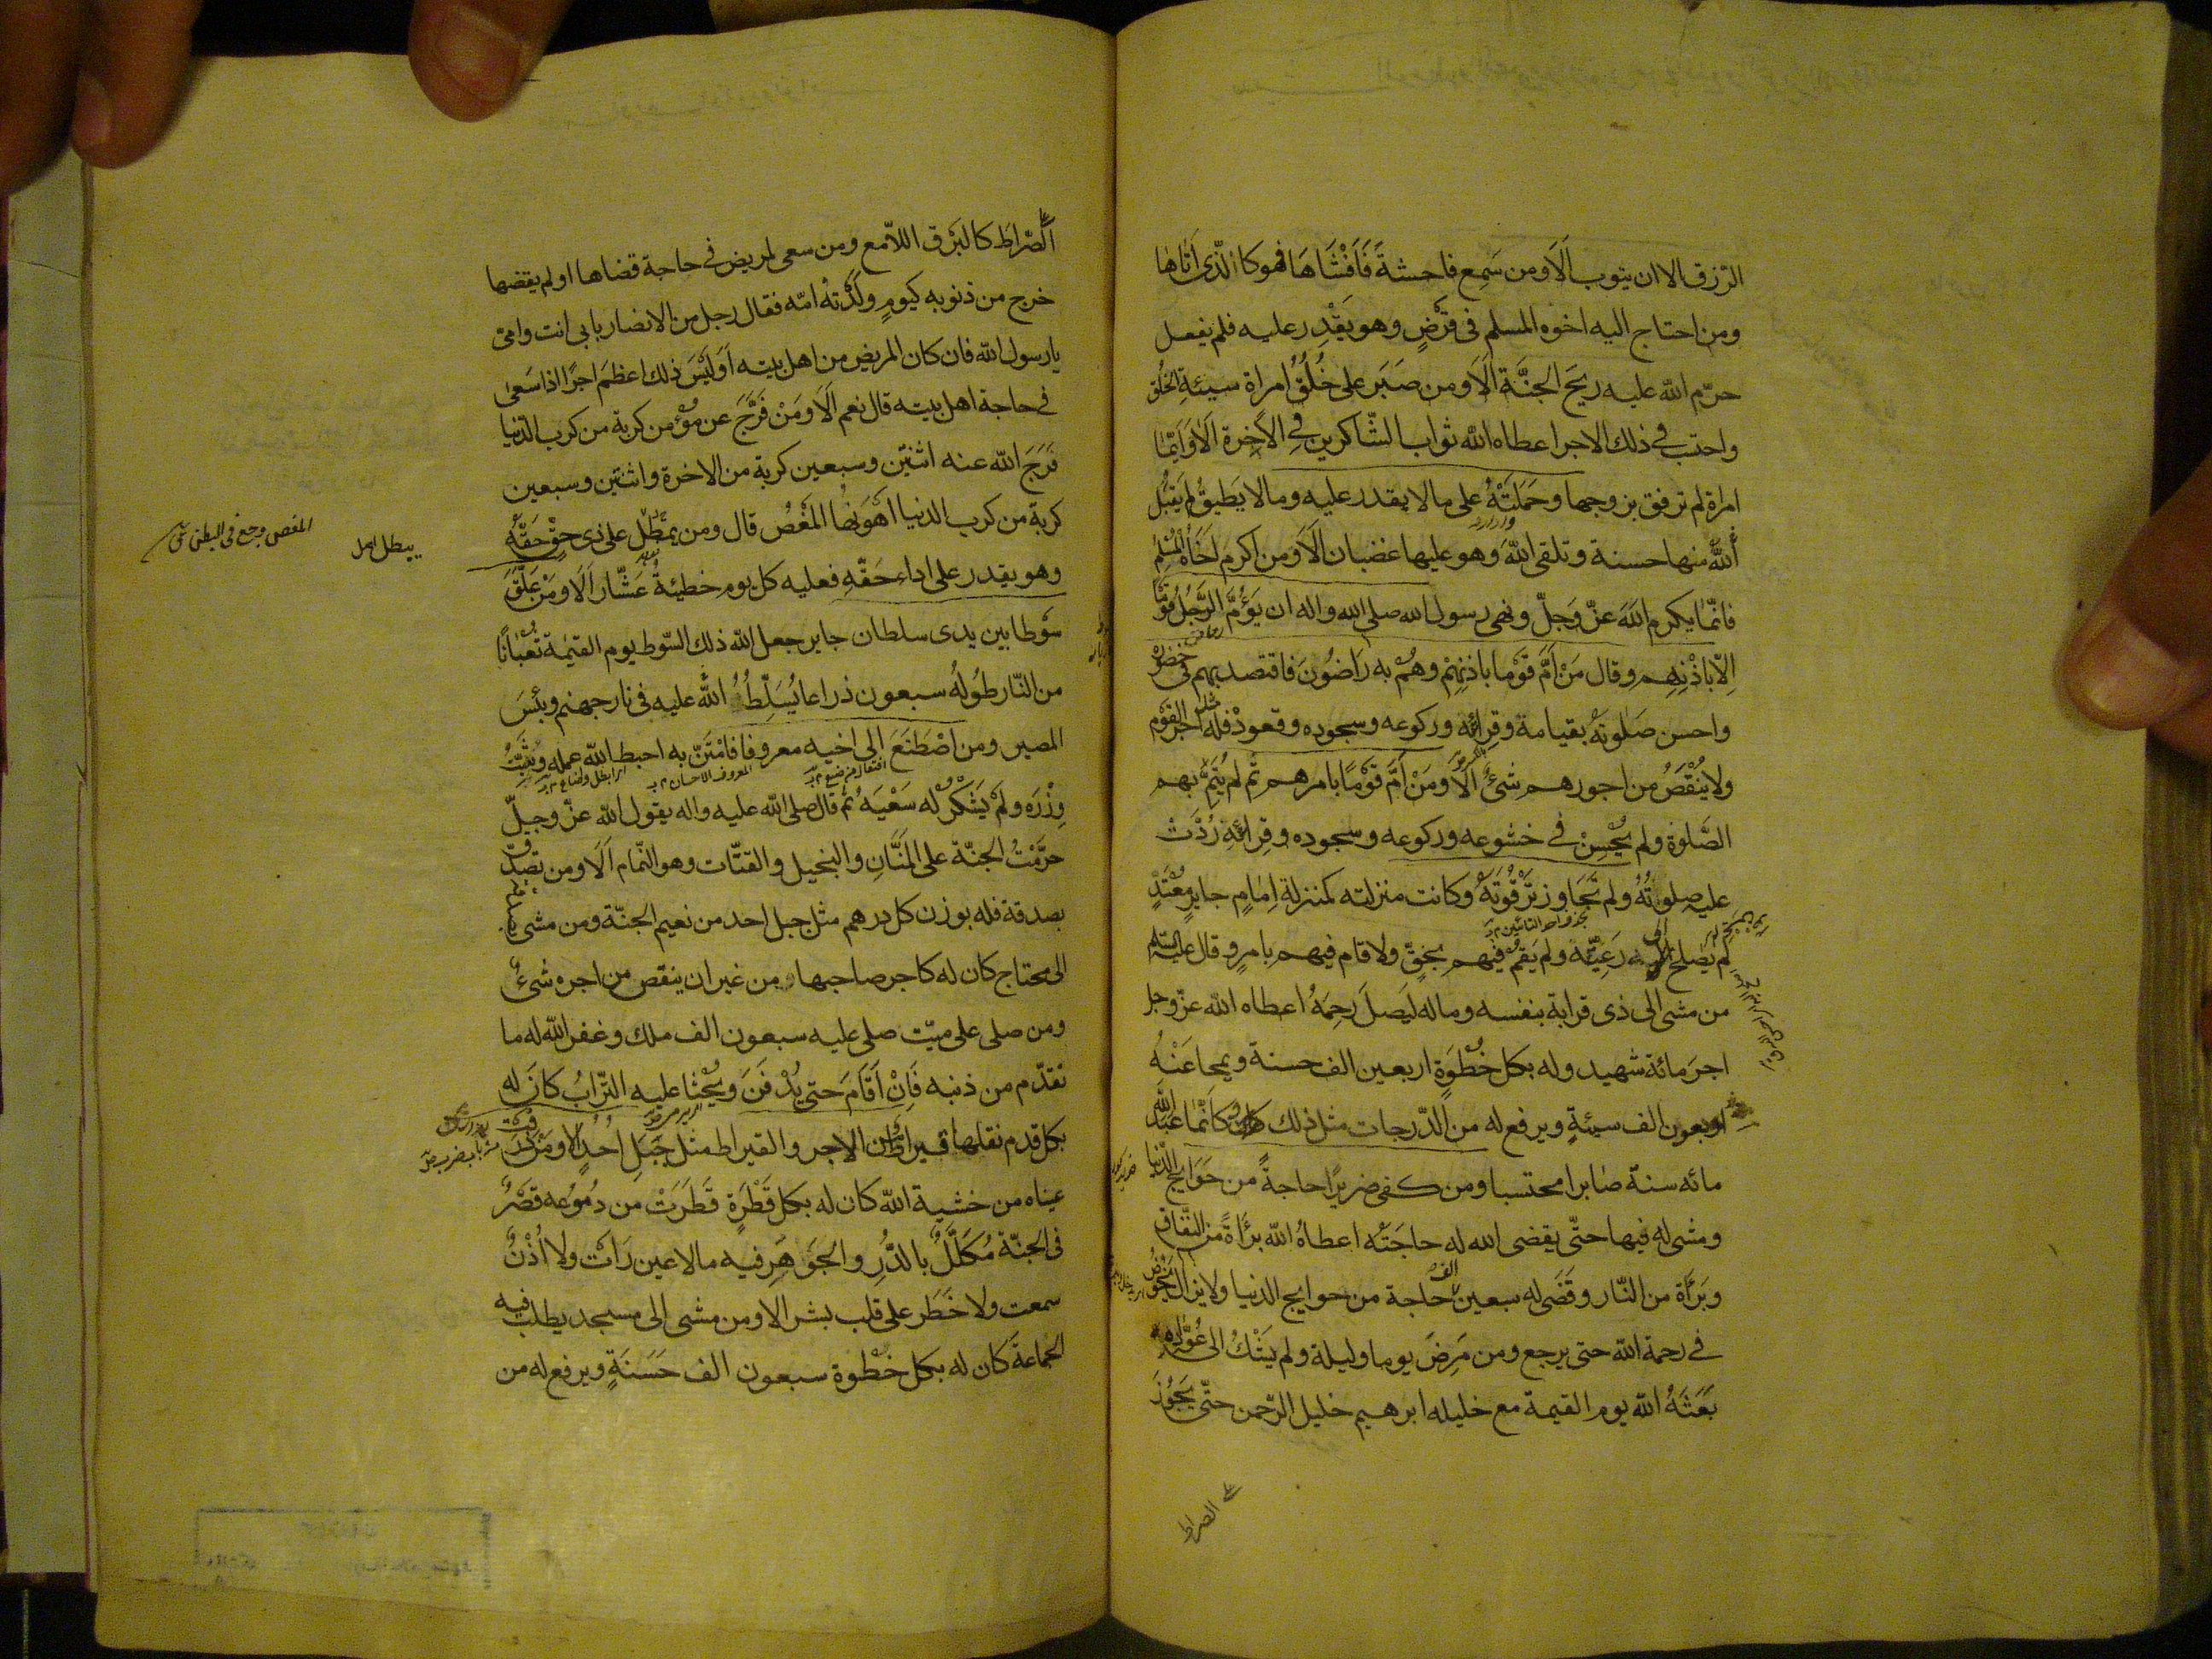 الرّزق الا ان يتوب اَلَا ومن سَمِع فاحشةً فَاَفْشَاهَا فهو كالّذى اَتاها
ومن احتاج اليه اخوه المسلم فى قَرْضٍ وهو يَقْدِر عليه فلم يفعل
حرّم الله عليه ريحَ الجنَّة اَلَا ومن صَبَر على خُلُقِ امراة سيئةِ الخُلق
واحتسب فى ذلك الاجر اعطاه الله ثواب الشّاكرين فى الاٰخِرة اَلَا وَاَيّما
امراة لم ترفق بزوجها وحَمَلَتْهُ على ما لا يقدر عليه وما لا يَطيقُ لم يَقْبَلِ
اللّٰهُ منها حسنة وتلقى اللّٰهَ وهو عليها غضبان اَلَا ومن اكرم اَخَاهُ المُسْلِمَ
فانّما يكرم اللّٰهَ عزّ وَجلّ ونهى رسول الله صلى الله واله ان يَؤُمَّ الرَّجُلُ قَوْمًا
اِلّا باذْنِهِم وقال مَنْ اَمَّ قَوْما باذنِهِمْ وهُمْ به رَاضُونَ فاقتصد بهم فى حُضُوره
واحسن صَلوٰتَهُ بقيامة وقِرائته وركوعه وسجوده وقعوده فله مثل اَجْرِ القَوْم
ولا يُنْقَصُ من اجورهم شئٌ اَلَا ومَنْ اَمَّ قَوْمًا بامرهم ثم لم يُتِمَّ بهم
الصَّلوٰة ولم يُحْسِنْ فى خشوعه وركوعه وسجوده وقِرائته رُدَّتْ
عليه صلوتُهُ ولم تَتَجَاوز تَرْقُوَتَهُ وكانت منزلته كمنزلة اِمٰامٍ جايرٍ مُعْتَدٍ
لم يُصلح الى رَعِيَّته ولم يَقُمْ فيهم بحقٍّ ولا قام فيهم بامرٍ وقال عليه السلم
من مشى الى ذى قرابة بنفسه وماله ليَصلَ رحِمَهُ اعطاه الله عزّ وجل
اجرَ مائة شهيد وله بكل خُطْوَةٍ اربعين الف حسنة ويمحا عَنْهُ
اربعون الف سيئةٍ ويرفع له من الدّرجات مثل ذلك وكَاَنّما عَبَدَ اللّٰهَ
مائه سنة صٰابرا محتسبا ومن كفى ضريرًا حاجةً من حَوَايج الدّنيا
ومشى له فيها حتّى يقضى الله له حاجَتَه اعطاهُ اللّٰه بَراءَةً من النّفاق
وبَرَاَة من النّار وقَضَى له سبعين الف حاجة من حوايج الدنيا ولا يزال يَخُوضُ
فى رحمة اللّٰه حتى يرجع ومن مَرِضَ يوما وليلة ولم يَشْكُ الى عُوّاده
بَعَثَهُ اللّٰه يوم القيمة مع خليله ابرهيم خليل الرّحمن حتّى يَجُوزَ
الصراط
الصّرٰاطَ كالبَرْق اللّامع ومن سعى لمريض فى حاجة قضاها او لم يقضها
خرج من ذنوبه كيومٍ ولَدَتهُ امّه فقال رجل من الانصار بابى انت وامّى
يا رسول الله فان كان المريض من اهل بيته اَوَلَيْسَ ذلك اعظمَ اجرًا اذا سَعىٰ
فى حاجة اهل بيته قال نعم اَلَا ومَنْ فَرَّجَ عن مؤمن كربة من كرب الدّنيا
فَرَّجَ اللّٰه عنه اثنتين وسبعين كربة من الاخرة واثنتين وسبعين
كربة من كرب الدنيا اَهْوَنهٰا المَغْصُ قال ومن يَمْطُلْ على ذى حقٍّ حَقَّهُ
المغص وجع فى البطن
وهو يقدر على اداء حَقّهِ فعليه كل يوم خطيئةُ عَشّار اَلَا ومَنْ عَلّقَ
سَوطا بين يدى سلطان جاير جعل اللّٰه ذلك السّوط يوم القيٰمة ثُعْبٰانًا
من النّار طُولُهُ سبعون ذراعا يُسَلِّطُهُ اللّٰهُ عليه فى نار جهنم وبئسَ
المصير ومن اصْطَنَعَ الى اخيه معروفا فامْتَنّ به احبط اللّٰه عمله وثَبَّتَ
وِزْرَه ولم يَشْكُرْ له سَعْيَه ثم قال صلى اللّٰه عليه واله يقول اللّٰه عزّ وجلّ
حرَّمْتُ الجنّة على المَنّانِ والبخيل والقتّات وهو النّمام اَلَا ومن تصدّق
بصدقة فله بوزن كل درهم مثل جبل احد من نعيم الجنّة ومن مشى بها
الى محتاج كان له كاجر صاحبها من غير ان ينقص من اجره شئٌ
ومن صلى على ميّت صلى عليه سبعون الف ملك وغفر اللّٰه له ما
تقدّم من ذنبه فَاِنْ اَقَامَ حتى يُدْفَنَ ويُحْثٰا عليه التّرابُ كانَ له
بكل قدم نقلها قيراط من الاجر والقيراط مثل جَبَلِ اُحُدٍ اَلَا ومَنْ ذَرَفَتْ
عيناه من خشية اللّٰه كان له بكل قَطْرَةٍ قَطَرَتْ من دمُوُعه قَصْرٌ
فى الجنّة مُكَلّلٌ بالدُّرِ والجَوَهَرِ فيه ما لا عين رَاَت ولا اُذُنٌ
سمعت ولا خَطَر على قلب بشر اَلَا ومن مشى الى مسجد يطلب فيه
الجماعة كان له بكل خطْوة سبعون الف حَسَنَةٍ ويرفع له من